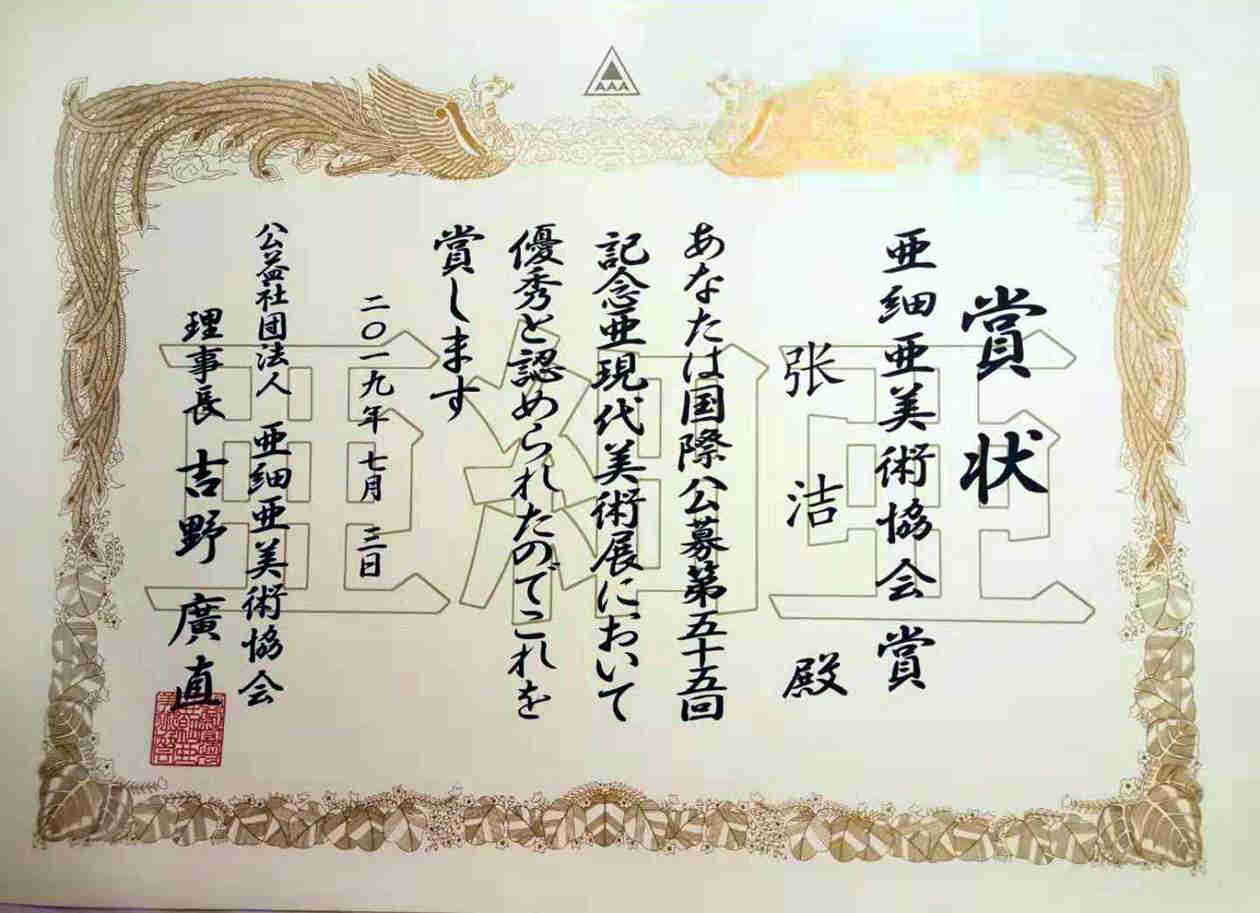 AAA
賞状
亜細亜美術協会賞
张洁殿
あなたは国際公募第五十五回
記念亜現代美術展において
優秀と認められたのでこれを
賞します
二〇一九年七月三日
公益社団法人 亜細亜美術協会
理事長 吉野廣直
亜細亜